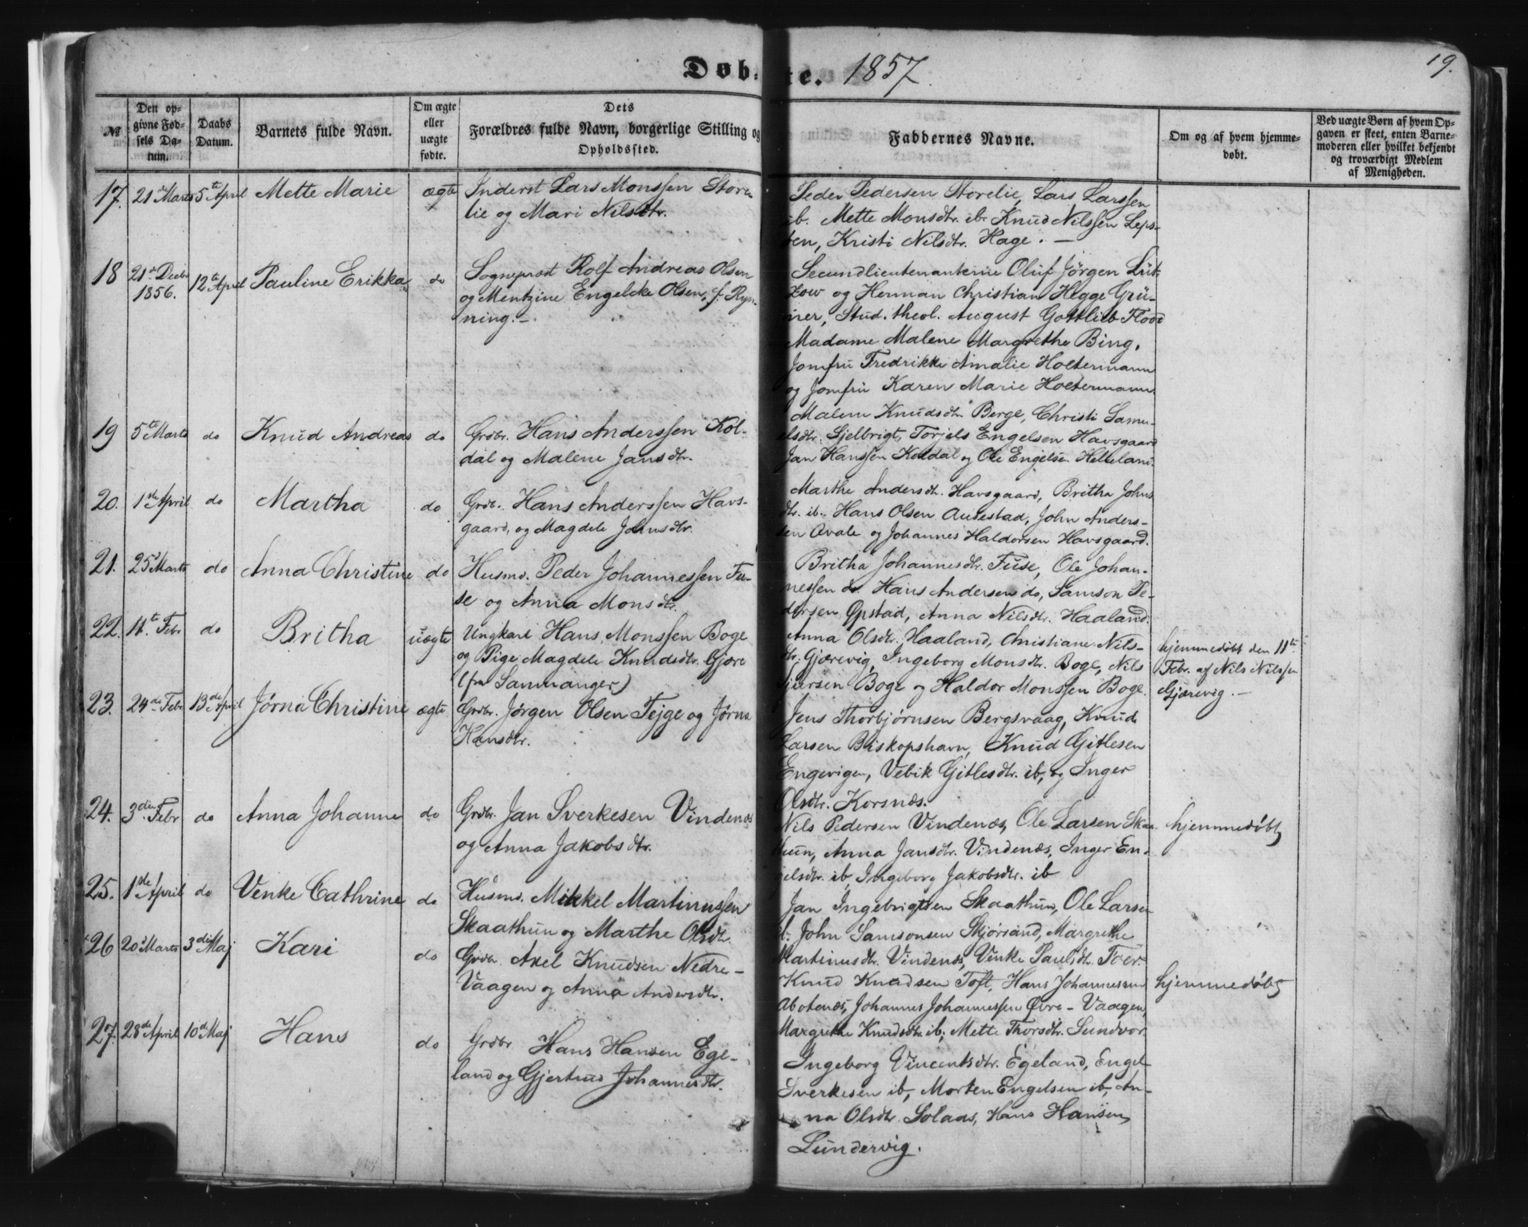 Døb-te. 1857
19.
№
Den opgivne Fødsels Datum.
Daabs Datum.
Barnets fulde Navn.
Om ægte eller uægte fødte.
Dets Forældres fulde Navn, borgerlige Stilling og Opholdssted.
Faddernes Navne.
Om og af hvem hjemmedøbt.
Ved uægte Børn af hvem Opgaven er skeet, enten Barnemoderen eller hvilket bekjendt og troværdigt Medlem af Menigheden.
17. 21 Marts 5te April Mette Marie ægte
Inderst Lars Monssen Store-
lie og Mari Nilsdtr.
Peder Pedersen Storelie, Lars Larssen
ib. Mette Monsdtr. ib. Knud Nilssen Leps-
Kristi Nilsdtr. Hage. —
18 21de Decbr 1856. 12te April Pauline Erikka do
Sogneprest Rolf Andreas Olsen
og Mentzine Engelcke Olsen, f. Ryn-
ning. —
Secundlieutenanterne Oluf Jørgen Lüt-
zow og Herman Christian Hegge Grü-
ner, Stud. theol. August Gottlieb Flood
Madame Malene Margrethe Bing,
Jomfru Fredrikke Amalie Holtermann
og Jomfru Karen Marie Holtermann
19 5te Marts do Knud Andreas do
Grdbr. Hans Anderssen Kol-
dal og Malene Jansdtr.
Malene Knudsdtr. Berge, Christi Samu-
elsdtr. Sjelbrigt, Torjels Engelsen Havsgaard
Jan Hanssen Koldal og Ole Engelsen Helleland.
20. 1ste April do Martha do
Grdbr. Hans Anderssen Havs-
gaard, og Magdele Jansdtr.
Marthe Andersdtr. Havsgaard, Britha Johns
dtr. ib. Hans Olsen Aurestad, John Anders-
sen Øvale og Johannes Haldorsen Havsgaard.
21. 25 Marts do Anna Christine do
Husmd. Peder Johannessen Fu-
se og Anna Monsdtr.
Britha Johannesdtr. Fuse, Ole Johan-
nessen do. Hans Andersens do, Samson Pe-
dersen Opstad, Anna Nilsdtr. Haaland.
22. 4de Febr do Britha uægte
Ungkarl Hans Monssen Boge
og Pige Magdele Knudsdtr. Gjere
(fra Sammanger)
Anna Olsdtr. Haaland, Christiane Nils-
dtr. Gjærevig, Ingeborg Monsdtr. Boge, Nils
Boge og Haldor Monssen Boge.
hjemmedøbt den 11te
Febr. af Nils Nilssen
Gjærevig. —
23. 24de Febr 13de April Jørna Christine ægte
Grdbr. Jørgen Olsen Teige og Jørna
Hansdtr.
Jens Thorbjørnsen Bergsvaag, Knud
Larsen Biskopshavn, Knud Gitlesen
Engevigen, Vebik Gitlesdtr. ib, og Inger
Olsdtr. Korsnæs.
24. 3die Febr do Anna Johanne do
Grdbr. Jan Sverkesen Vindenæs
og Anna Jakobsdtr.
Nils Pedersen Vindenæs, Ole Larsen Skaa-
thun, Anna Jansdtr. Vindenæs, Inger En-
gelsdtr. ib, Ingeborg Jakobsdtr. ib
hjemmedøbt
25. 1ste April do Venke Cathrine do
Husmd. Mikkel Martinussen
Skaathun og Marthe Olsdtr.
Jan Ingebrigtsen Skaathun, Ole Larsen
John Samsonsen Skjørsand, Margrethe
Martinusdtr. Vindenæs, Vinke Paulsdtr.
26 20 Marts 3die Maj Kari do
Grdbr. Axel Knudsen Nedre-
Vaagen og Anna Andersdtr.
Knud Knudsen Toft, Hans Johannessen
Johannes Johannessen Øvre-Vaagen,
Margrethe Knudsdtr. ib, Mette Thorsdtr. Sundvor
hjemmedøbt
27. 28de April 10de Maj Hans do
Grdbr Hans Hansen Ege-
land og Gjertrud Johannesdtr.
Ingeborg Vincentsdtr. Egeland, Engel
Sverkesen ib, Morten Engelsen ib, An-
na Olsdtr. Solaas, Hans Hansen
Lundervig.